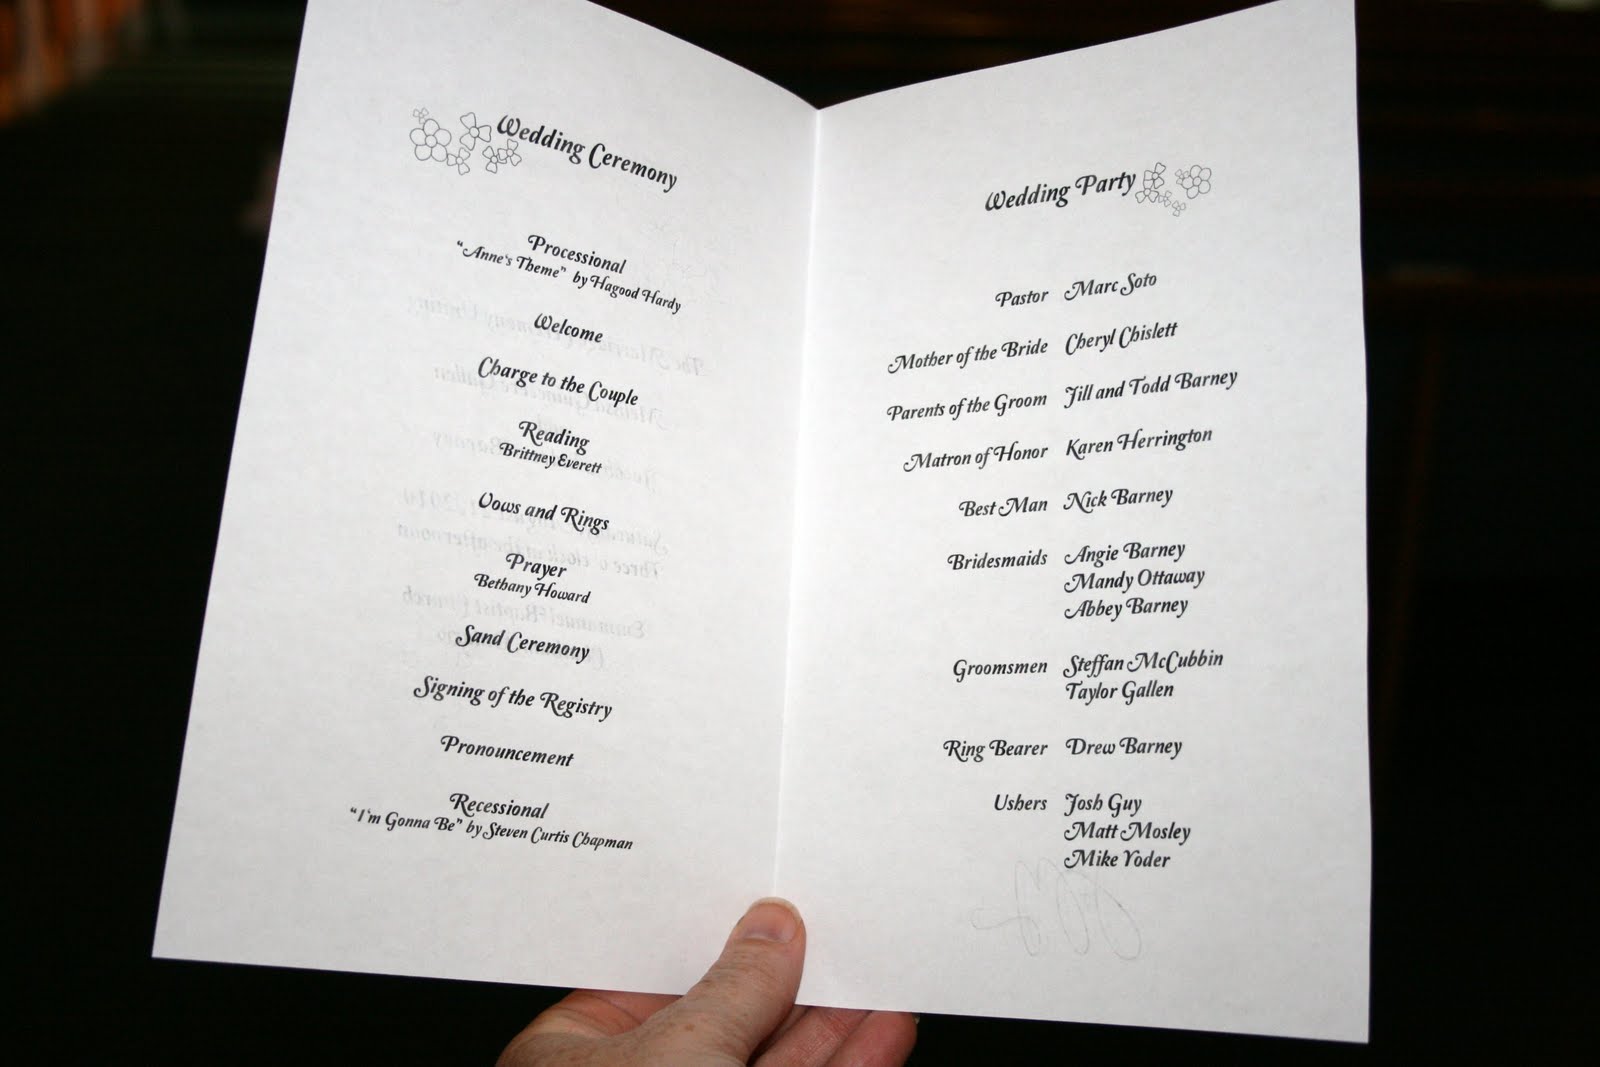 Wedding Ceremony
Processional
"Anne's Theme" by Hagood Hardy
Welcome
Charge to the Couple
Reading
Brittney Everett
Vows and Rings
Prayer
Bethany Howard
Sand Ceremony
Signing of the Registry
Pronouncement
Recessional
"I'm Gonna Be" by Steven Curtis Chapman
Wedding Party
Pastor Marc Soto
Mother of the Bride Cheryl Chislett
Parents of the Groom Jill and Todd Barney
Matron of Honor Karen Herrington
Best Man Nick Barney
Bridesmaids Angie Barney
Mandy Ottaway
Abbey Barney
Groomsmen Steffan McCubbin
Taylor Gallen
Ring Bearer Drew Barney
Ushers Josh Guy
Matt Mosley
Mike Yoder